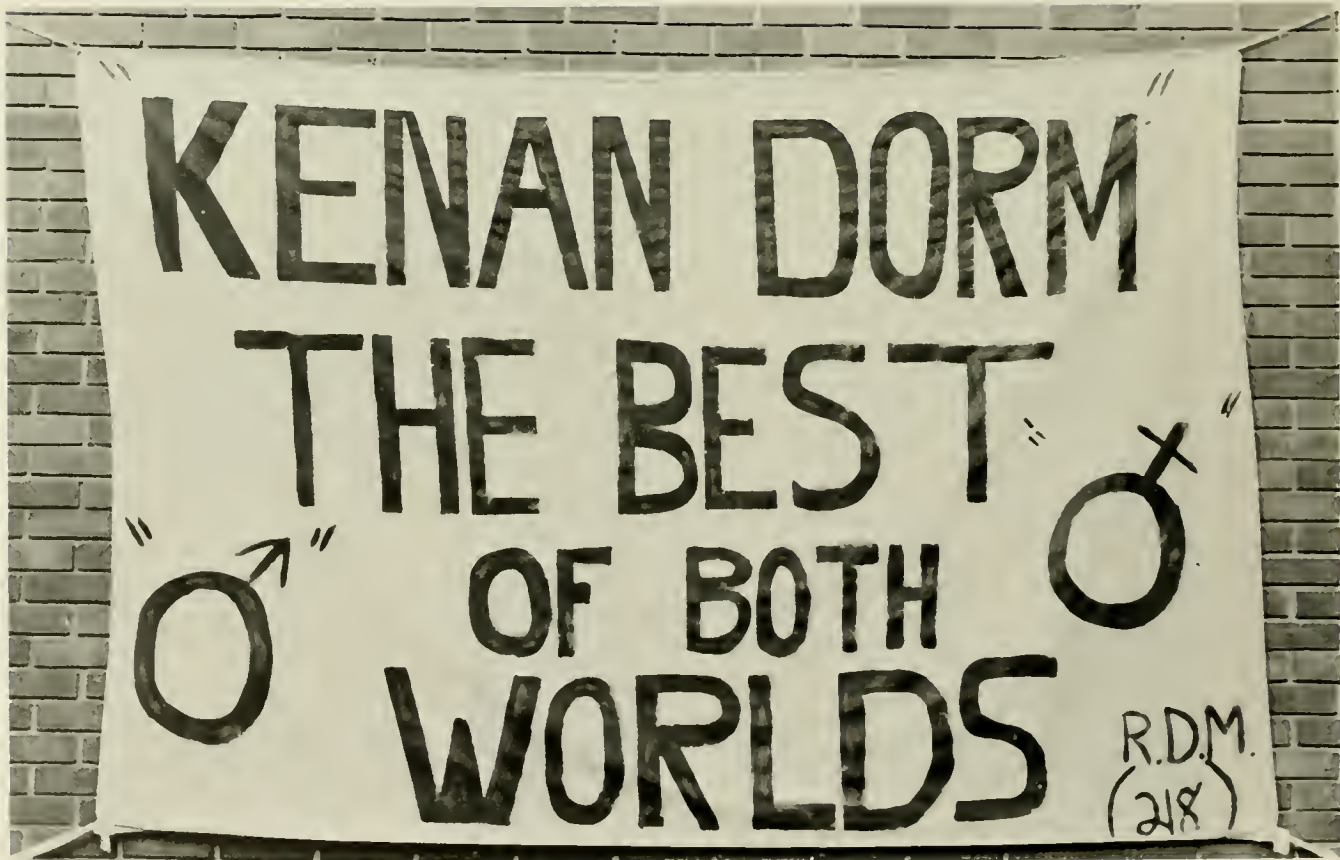 "KENAN DORM"
THE BEST
OF BOTH
WORLDS
"♂"
"♀"
R.D.M.
(218)